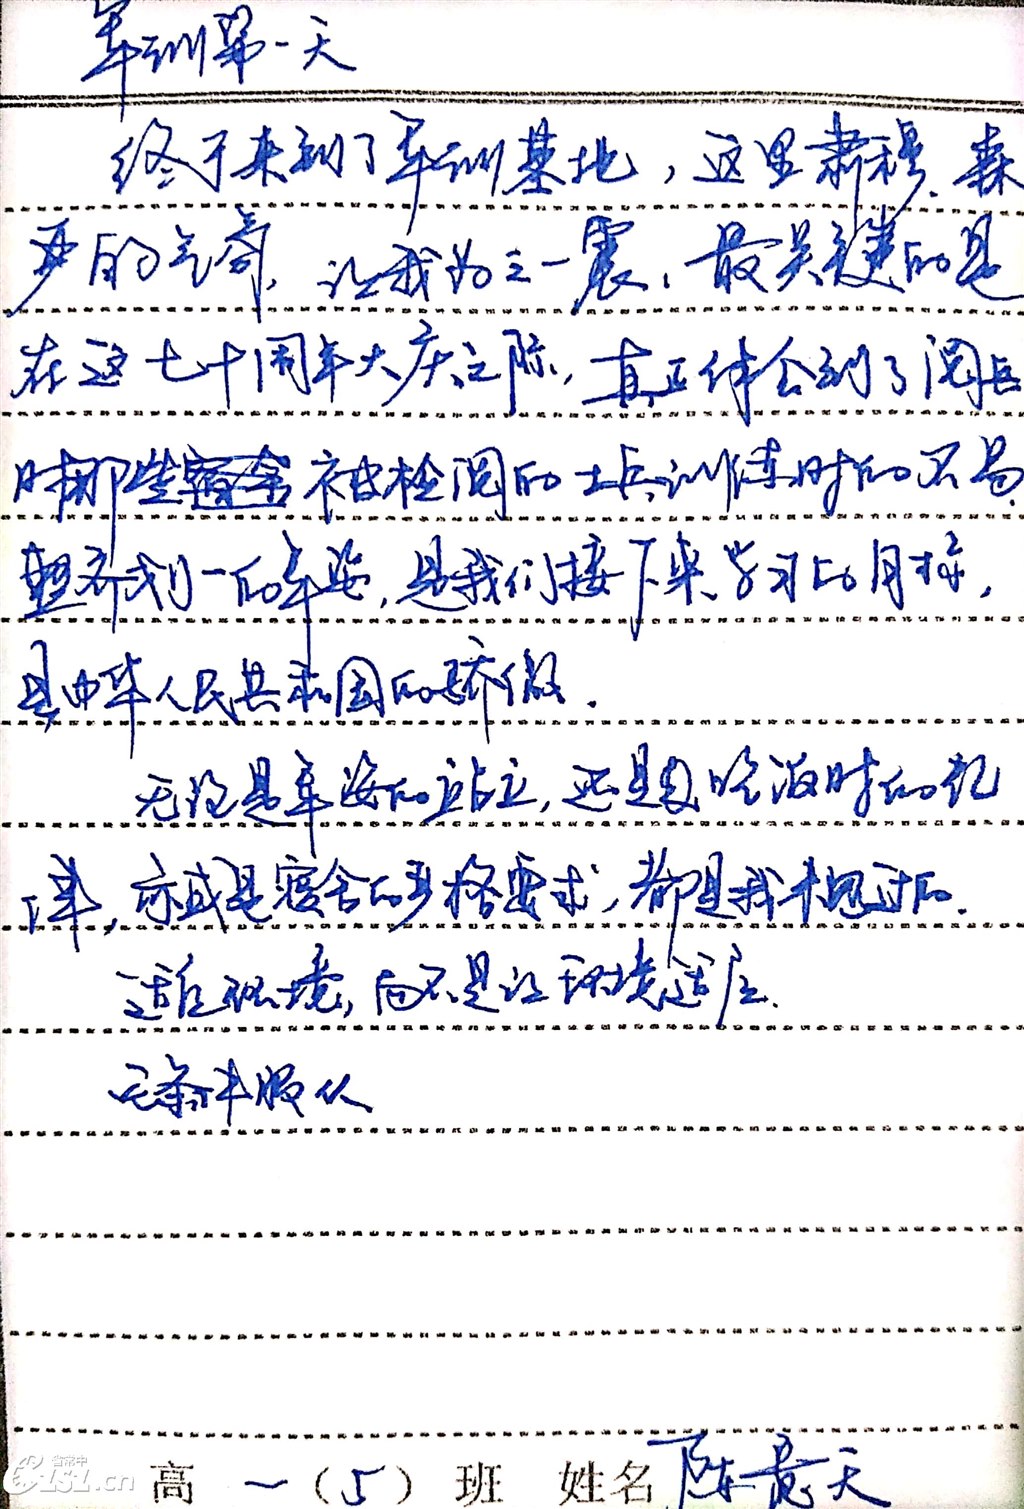 军训第一天
终于来到了军训基地，这里肃穆、森
严的气奇，让我为之一震，最关键的是
在这七十周年大庆之际，真正体会到了阅兵
时那些被检阅的士兵训练时的不易
整齐划一的军姿，是我们接下来学习的目标，
是中华人民共和国的骄傲．
无论是军姿的站立，还是吃饭时的纪
律，亦或是寝舍的严格要求，都是我未见过的．
适应环境，而不是让环境适应．
无条件服从
高一（5）班 姓名 陈天
省常中
1ZSZ.cn